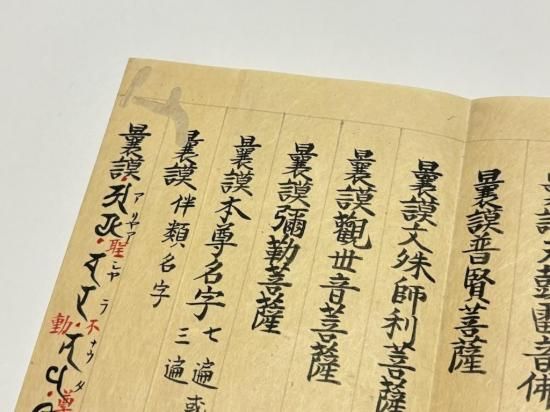 雷音佛
曩謨普賢菩薩
曩謨文殊師利菩薩
曩謨觀世音菩薩
曩謨彌勒菩薩
曩謨本尊名字七遍或
曩謨伴類名字三遍
曩謨
アリヤア
聖
シヤラ
不
動
ナウタ